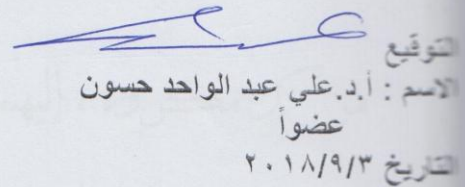 التوقيع
الاسم : أ.د.علي عبد الواحد حسون
عضواً
التاريخ ٢٠١٨/٩/٣